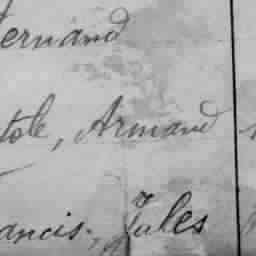 ernand
tole, Armand
ancis, Jules